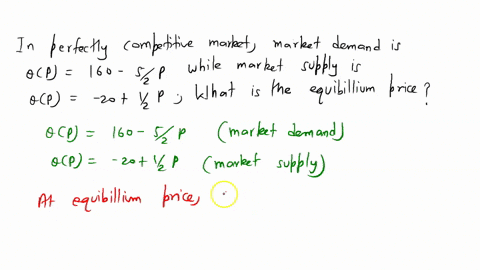 In perfectly competitive market, market demand is
θ(P) = 160 - 5/2 P while market supply is
θ(P) = -20 + 1/2 P, What is the equibillium price?
θ(P) = 160 - 5/2 P (market demand)
θ(P) = -20 + 1/2 P (market supply)
At equibillium price,